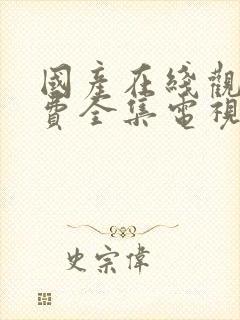 國產在綫觀
費全集電視
史宗偉